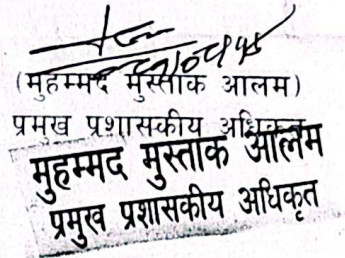 (मुहम्मद मुस्ताक आलम)
प्रमख प्रशासकीय अधिकृत
मुहम्मद मुस्ताक आलम
प्रमुख प्रशासकीय अधिकृत